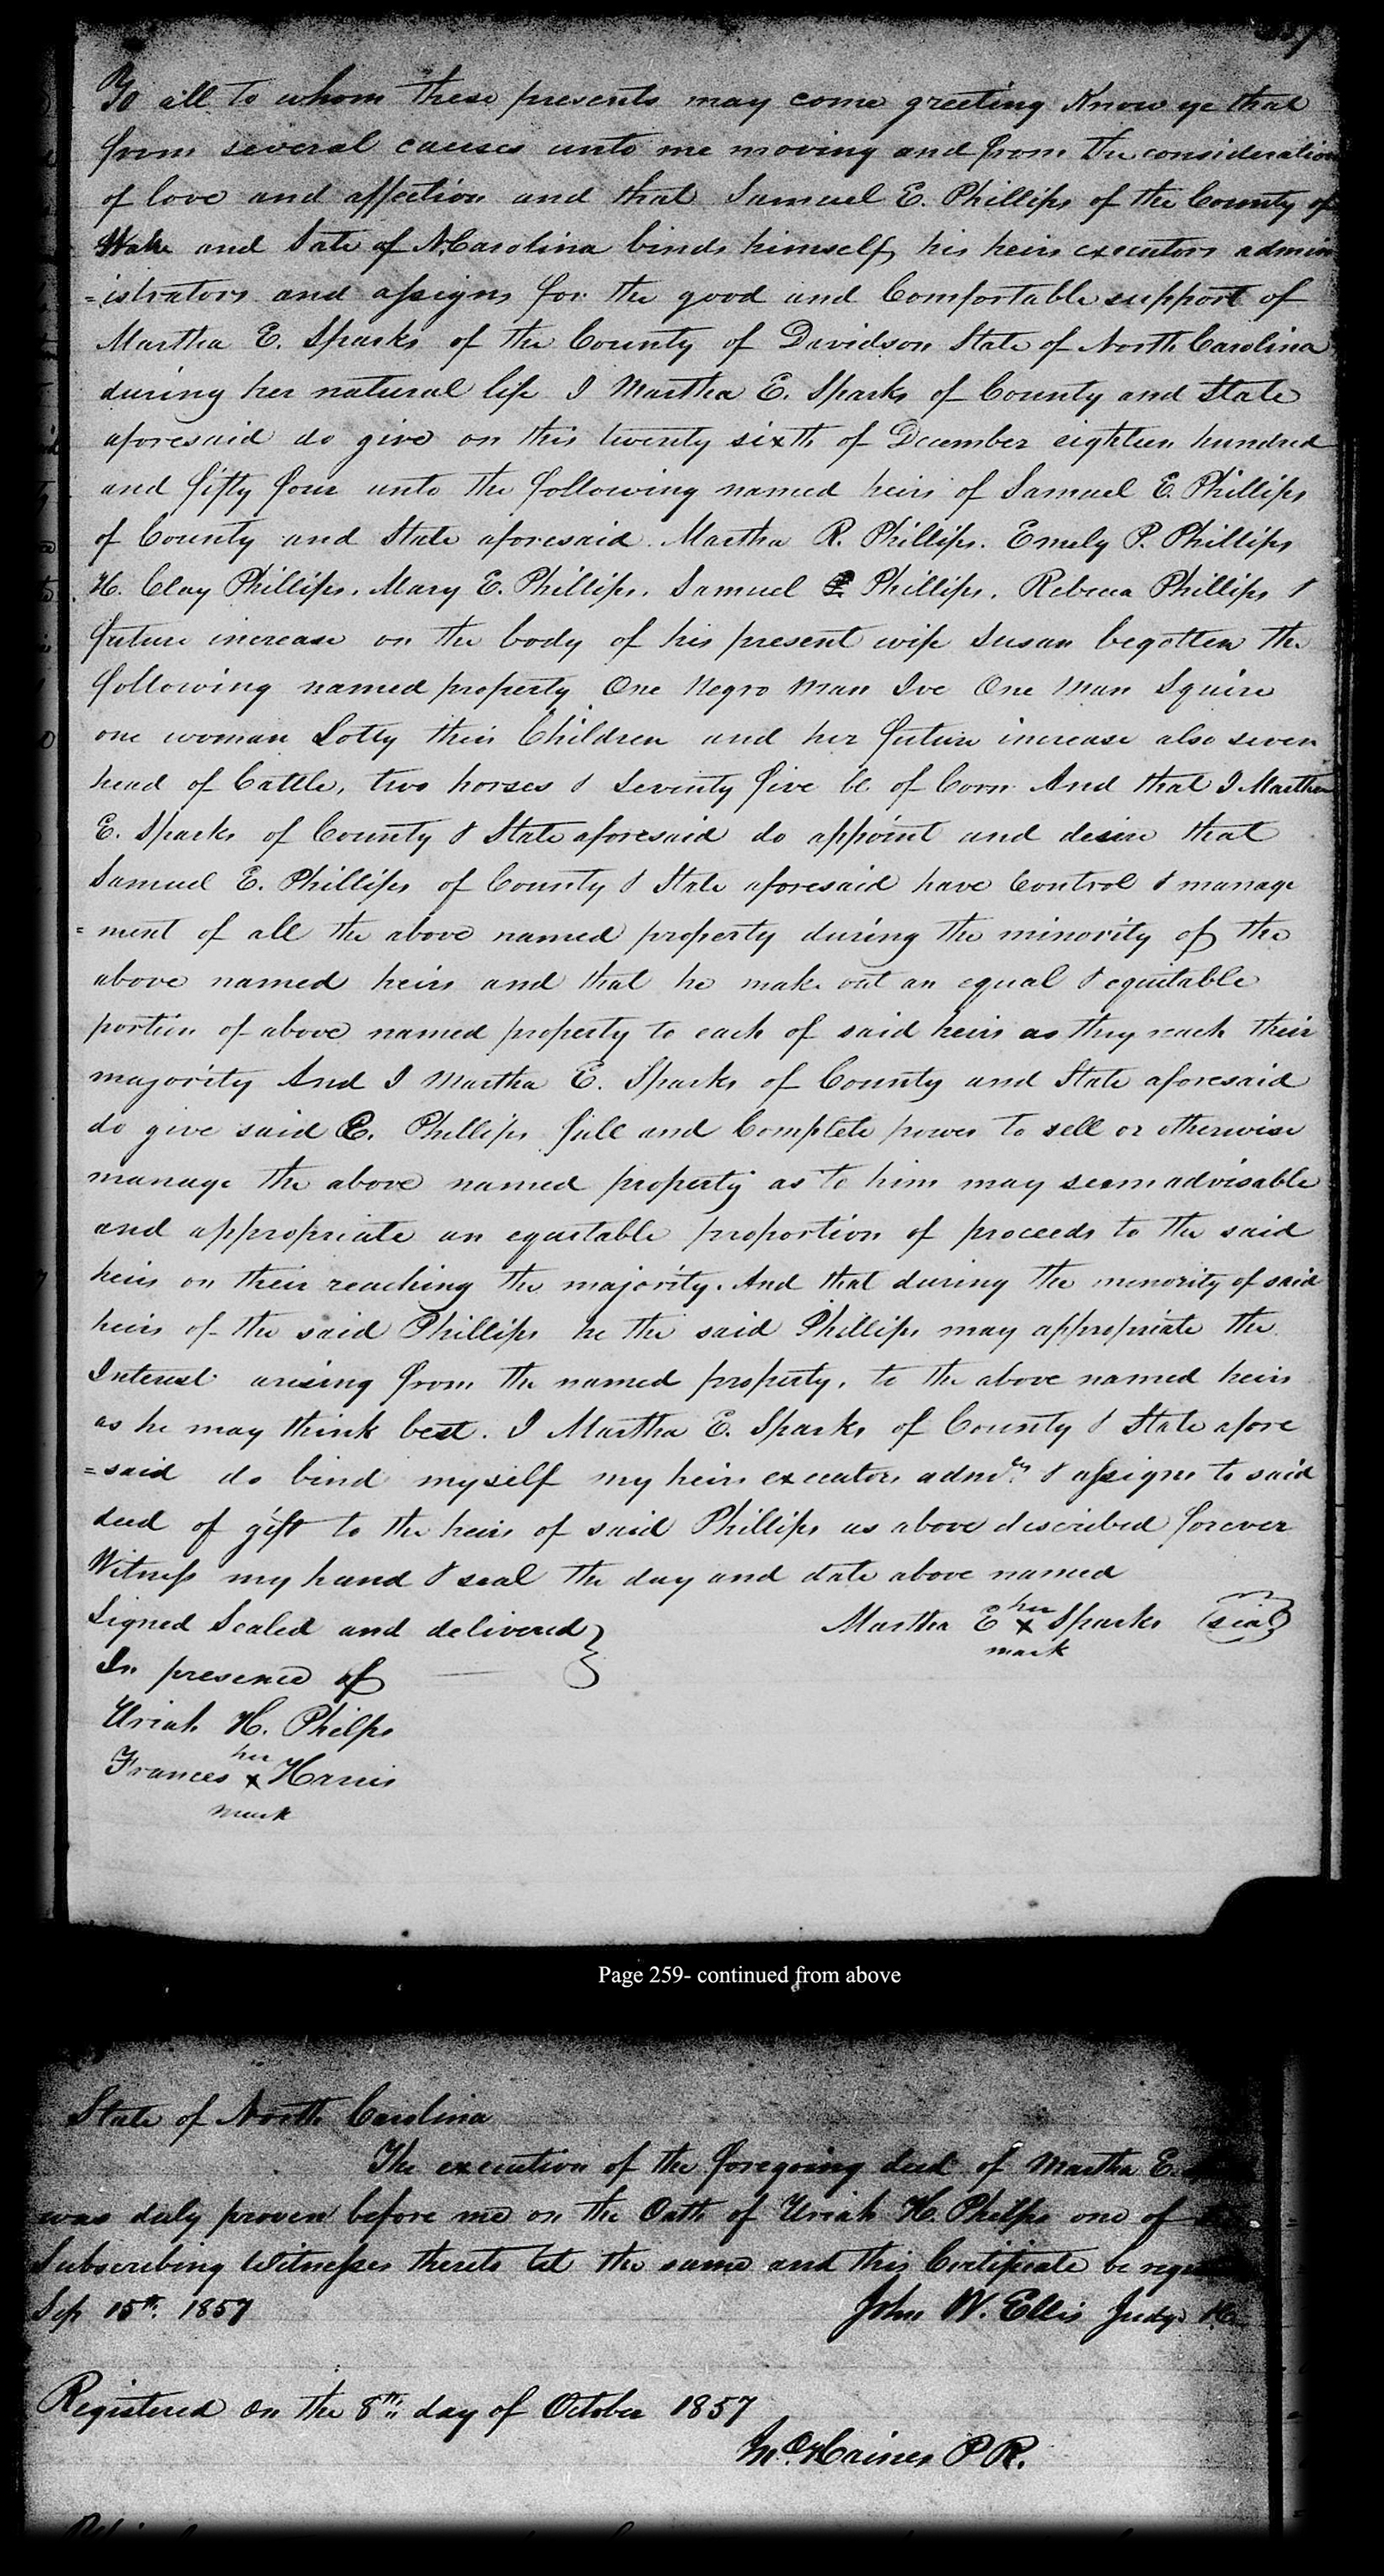 To all to whom these presents may come greeting Know ye that
from several causes unto me moving and from the consideration
of love and affection and that Samuel E. Phillips of the County of
Wake and Sate of N.Carolina binds himself, his heirs executors admin
=istrators and assigns for the good and Comfortable support of
Martha E. Sparks of the County of Davidson State of North Carolina
during her natural life I Martha E. Sparks of County and State
aforesaid do give on this twenty sixth of December eighteen hundred
and fifty four unto the following named heirs of Samuel E. Phillips
of County and State aforesaid. Martha R. Phillips. Emely P. Phillips
H. Clay Phillips. Mary E. Phillips. Samuel E. Phillips. Rebecca Phillips &
future increase on the body of his present wife Susan begotten the
following named property One Negro Man Ive One Man Squire
one woman Lotty their Children and her future increase also seven
head of Cattle, two horses & Seventy five bl of Corn And that I Martha
E. Sparks of County & State aforesaid do appoint and desire that
Samuel E. Phillips of County & State aforesaid have Control & manage
=ment of all the above named property during the minority of the
above named heirs and that he make out an equal & equitable
portion of above named property to each of said heirs as they reach their
majority And I Martha E. Sparks of County and State aforesaid
do give said E. Phillips full and Complete power to sell or otherwise
manage the above named property as to him may seem advisable
and appropriate an equitable proportion of proceeds to the said
heirs on their reaching the majority. And that during the minority of said
heirs of the said Phillips he the said Phillips may appropriate the
Interest arising from the named property, to the above named heirs
as he may think best. I Martha E. Sparks of County & State afore
=said do bind myself my heirs executors admrs & assigns to said
deed of gift to the heirs of said Phillips as above described forever
Witness my hand & seal the day and date above named
Signed Sealed and delivered
In presence of
Martha E her X mark Sparks (seal)
Uriah H. Phelps
Frances her X mark Harris
Page 259- continued from above
State of North Carolina
The execution of the foregoing deed of Martha E.
was duly proven before me on the Oath of Uriah H. Phelps one of
Subscribing Witnesses thereto let the same and this Certificate be
Sep 15th. 1857
John W. Ellis Judge
Registered on the 8th day of October 1857
Haines P R.